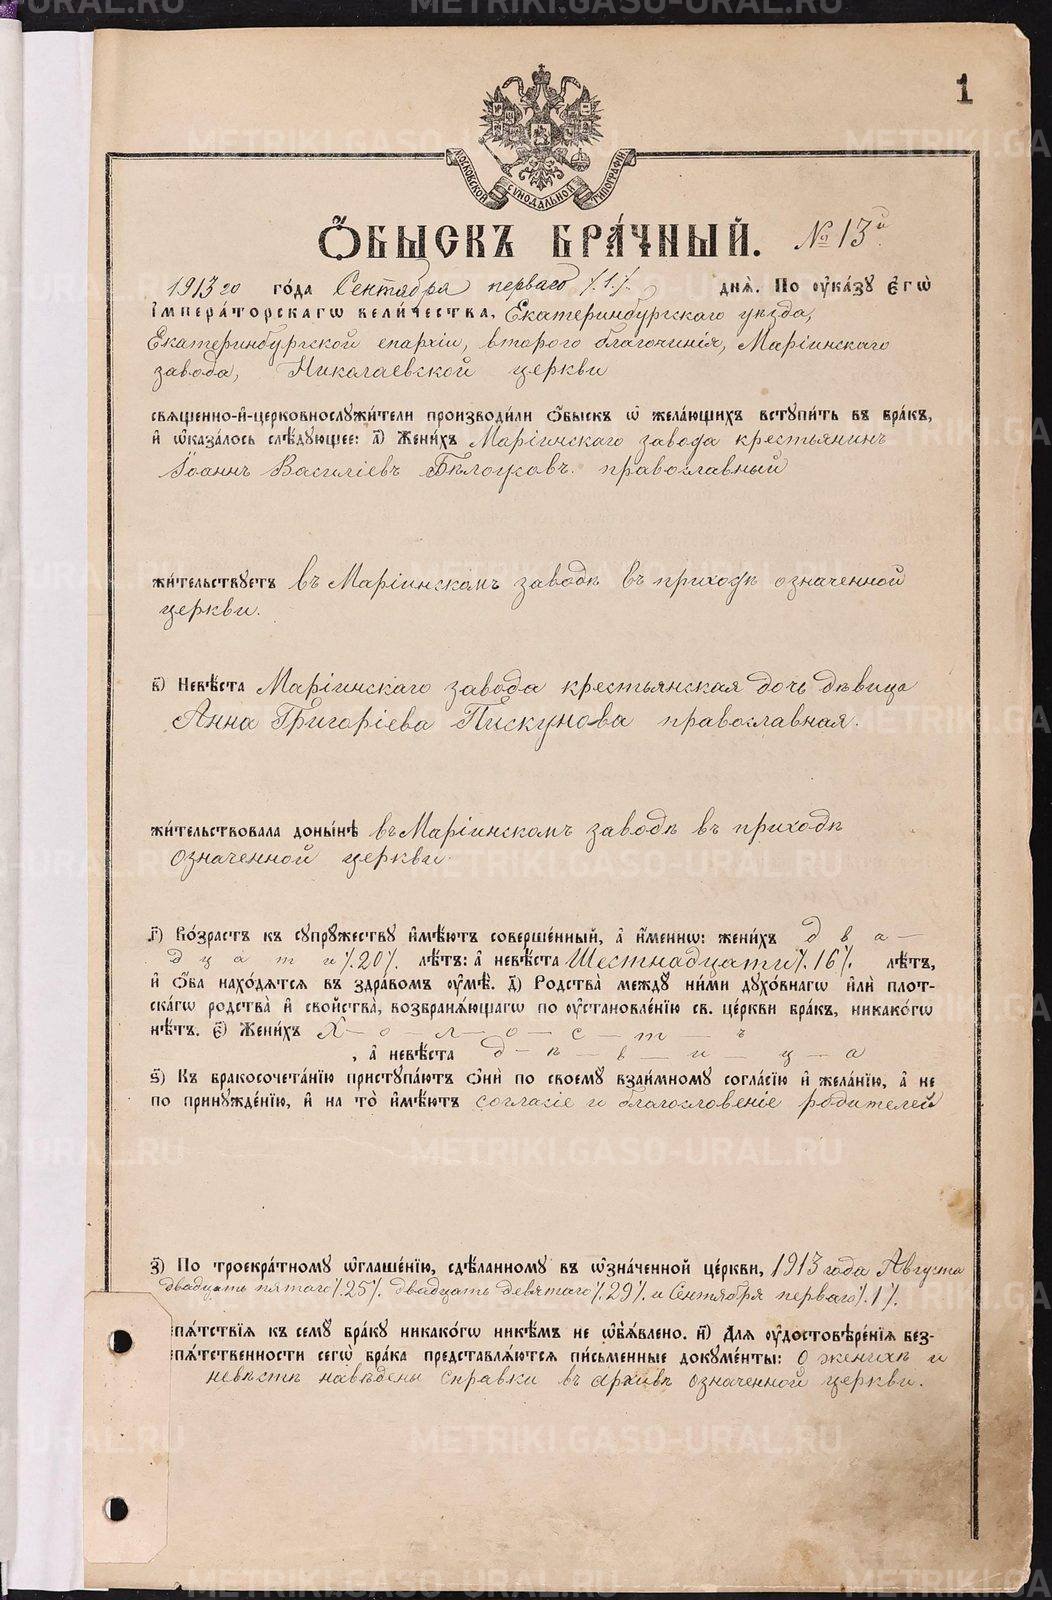 1
МОСКОВСКОЙ СѴНОДАЛЬНОЙ ТИПОГРАФІИ
Ѻ҆БЫСКЪ БРА́ЧНЫЙ. № 13й.
1913го го́да Сентября перваго /.1./. днѧ̀. По ᲂу҆ка́зу Є҆гѡ̀
И҆мпера́торскагѡ вели́чества, Екатеринбургскаго уѣзда,
Екатеринбургской епархіи, второго благочинія, Маріинскаго
завода, Николаевской церкви
свѧщенно-и҆-церковнослужи́тели производи́ли ѻ҆́быскъ ѡ҆ жела́ющихъ вступи́ть въ бра́къ,
и҆ ѡ҆каза́лось слѣ́дующее: а҃) Жени́хъ Маріинскаго завода крестьянинъ
Іоаннъ Василіевъ Бѣлоусовъ православный
жи́тельствуетъ въ Маріинскомъ заводѣ въ приходѣ означенной
церкви.
в҃) Невѣ́ста Маріинскаго завода крестьянская дочь дѣвица
Анна Григоріева Пискунова православная.
жи́тельствовала доны́нѣ въ Маріинскомъ заводѣ въ приходѣ
означенной церкви.
г҃) Во́зрастъ къ супру́жеству и҆мѣ́ютъ соверше́нный, а҆ и҆́меннѡ: жени́хъ д в а —
д ц а т и /.20/. лѣ́тъ: а҆ невѣ́ста Шестнадцати /.16/. лѣ́тъ,
и҆ ѻ҆́ба нахо́дѧтсѧ въ здра́вомъ ᲂу҆мѣ̀. д҃) Родства̀ между ни́ми духо́внагѡ и҆лѝ пло́т-
ска́гѡ родства̀ и҆ сво́йства̀, возбранѧ́ющагѡ по ᲂу҆становле́нїю св. це́ркви бра́къ, никако́гѡ
нѣ́тъ. є҃) Жени́хъ Х — о — л — о — с — т — ъ
, а҆ невѣ́ста д — ѣ — в — и — ц — а
ѕ҃) Къ бракосочета́нїю приступа́ютъ ѻ҆нѝ по своему взаи́мному согла́сїю и҆ жела́нїю, а҆ не
по принужде́нїю, и҆ на то̀ и҆мѣ́ютъ согласіе и благословеніе родителей
з҃) По троекра́тному ѡ҆глаше́нїю, сдѣ́ланному въ ѡ҆зна́ченной це́ркви, 1913 года Августа
двадцать пятаго /.25/. двадцать девятаго /.29/. и Сентября перваго /.1/.
епѧ́тствїѧ къ сему бра́ку никако́гѡ никѣ́мъ не ѡ҆б̾ѧ́влено. и҃) Для ᲂу҆достовѣре́нїѧ без-
епѧ́тственности сегѡ̀ бра́ка представлѧ́ютсѧ пи́сьменные докуме́нты: о женихѣ и
невѣстѣ наведены справки въ архивѣ означенной церкви.
METRIKI.GASO-URAL.RU